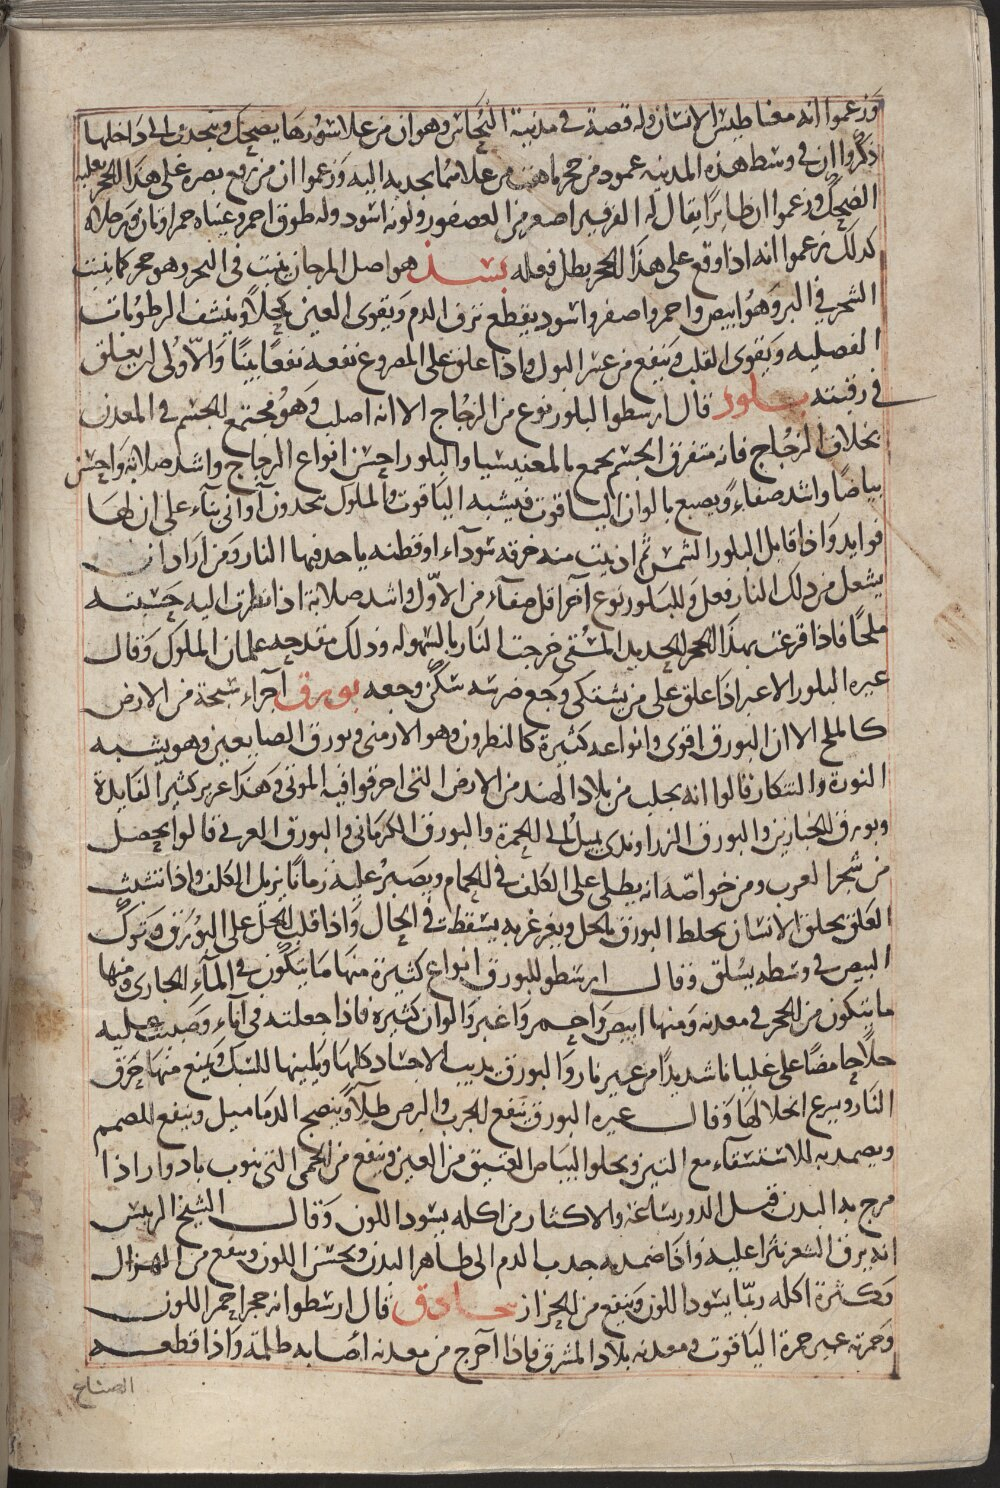 وزعموا انه مغناطيس الانسان وله قصة في مدينة النحاس وهو ان من علا سورها يضحك وينجذب الى داخلها
ذكروا ان في وسط هذه المدينه عمود من حجر باهت من علا منها يجذبه اليه وزعموا ان من رفع بصره على هذا الحجر يغلبه
الضحك وزعموا ان طايرا يقال له الفرفير اصغر من العصفور ولونه اسود وله طوق احمر وعيناه حمراوتان ورجلاه
كذلك زعموا انه اذا وقع على هذا الحجر بطل فعله بسذ هو اصل المرجان ينبت في البحر وهو حجر كما ينبت
الشجر في البر وهو ابيض واحمر واصفر واسود يقطع نزف الدم ويقوى العين كحلا وينشف الرطوبات
الفضليه ويقوى القلب وينفع من عسر البول واذا علق على المصروع نفعه نفعا بينا والاولى ان يعلق
في رقبته بلور قال ارسطو البلور نوع من الزجاج الا انه اصلب وهو مجتمع الجسم في المعدن
بخلاف الزجاج فانه متفرق الجسم يجمع بالمغنيسيا والبلور احسن انواع الزجاج واشد صلابة واحسن
بياضا واشد صفاء ويصبغ بالوان الياقوت فيشبه الياقوت والملوك يتخذون آواني بناء على ان لها
فوايد واذا قابل البلور الشمس ثم ادنيت منه خرقه سودآء اوقطنه ياخذ فيها النار ومن اراد ان
يشعل من ذلك النار فعل وللبلور نوع آخر اقل صفآء من الاول واشد صلابة اذا نظرت اليه حسبته
ملحا فاذا قرعت بهذا الحجر الحديد المسقى خرجت النار بالسهوله وذلك مقدحه غلمان الملوك وقال
غيره البلور الاغبر اذا علق على من يشتكى وجع ضرسه سكن وجعه بورق اجزاء سبخة من الارض
كالملح الا ان البورق اقوى وانواعه كثيرة كالنطرون وهو الارمنى وبورق الصايغين وهو يشبه
النورة والتنكار قالوا انه يجلب من بلاد الهند من الارض التي احرقوا فيه الموتى وهذا عزيز كثير الفايدة
وبورق الخبازين والبورق الزراوندى يميل الى الحمرة والبورق الكرماني والبورق الغربي قالوا يحصل
من شجر الغرب ومن خواصه انه يطلى على الكلف في الحمام ويصبر عليه زمانا يزيل الكلف واذا تشبث
العلق بحلق الانسان يخلط البورق بالخل ويغرغر به يسقط في الحال واذا قلب الخل على البورق وترك
البيض في وسطه يسلق وقال ارسطو للبورق انواع كثيرة منها ما يتكون في المآء الجارى ومنها
ما يتكون من الحجر في معدنه ومنها ابيض واحمر واغبر والوان كثيرة فاذا جعلته في آناء وصببت عليه
خلا حامضا على غليانا شديدا من غير نار والبورق يذيب الاجساد كلها ويلينها للسبك ويمنع منها حرق
النار ويسرع انحلالها وقال غيره البورق ينفع الجرب والبرص طلآء وينضج الدماميل وينفع الصمم
ويضمد به للاستسقاء مع التين ويجلوا البياض العتيق من العين وينفع من الحمى التي تنوب بادوار اذا
مرج به البدن قبل الدور بساعة والاكثار من اكله يسود اللون وقال الشيخ الرئيس
انه يرق الشعر نثرا عليه واذا ضمد به جذب الدم الى ظاهر البدن ويحسن اللون وينفع من الهزال
وكثرة اكله ربما يسود اللون وينفع من الحزاز بيجادق قال ارسطو انه حجر احمر اللون
وحمرته غير حمرة الياقوت ومعدنه بلاد المشرق فاذا آخرج من معدنه اصابه ظلمة واذا قطعه
الصناع